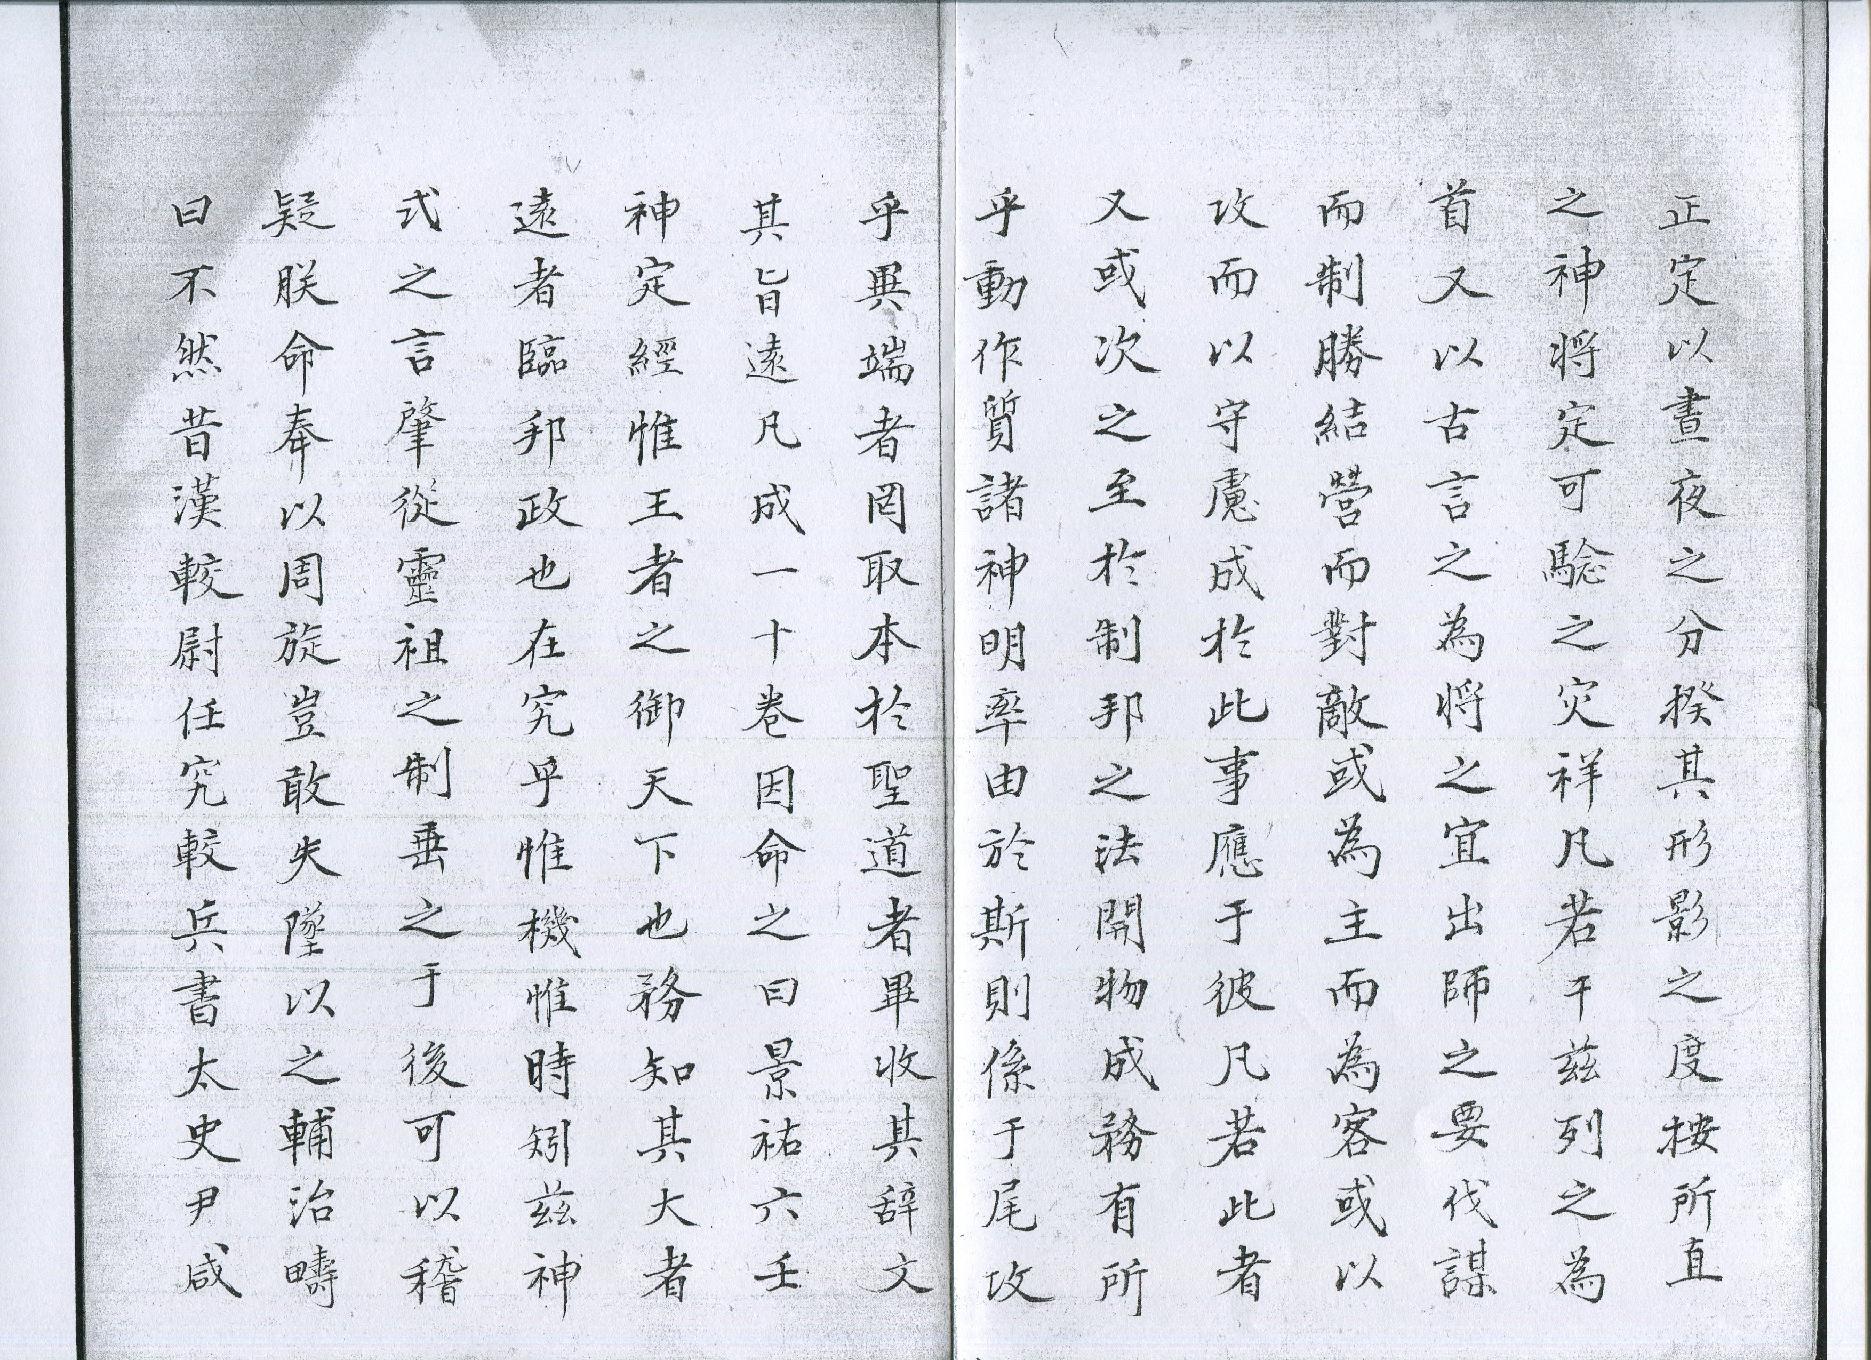 正定以晝夜之分揆其形影之度按所直
之神將定可騐之灾祥凡若干茲列之為
首又以古言之為將之宜出師之要伐謀
而制勝結營而對敵或為主而為客或以
攻而以守慮成於此事應于彼凡若此者
又或次之至於制邦之法開物成務有所
乎動作質諸神明率由於斯則係于尾攻
乎異端者罔取本於聖道者畢收其辞文
其旨遠凡成一十卷因命之曰景祐六壬
神定經惟王者之御天下也務知其大者
遠者臨邦政也在究乎惟機惟時矧茲神
式之言肇從靈祖之制垂之于後可以稽
疑朕命奉以周旋豈敢失墜以之輔治疇
曰不然昔漢較尉任究較兵書太史尹咸